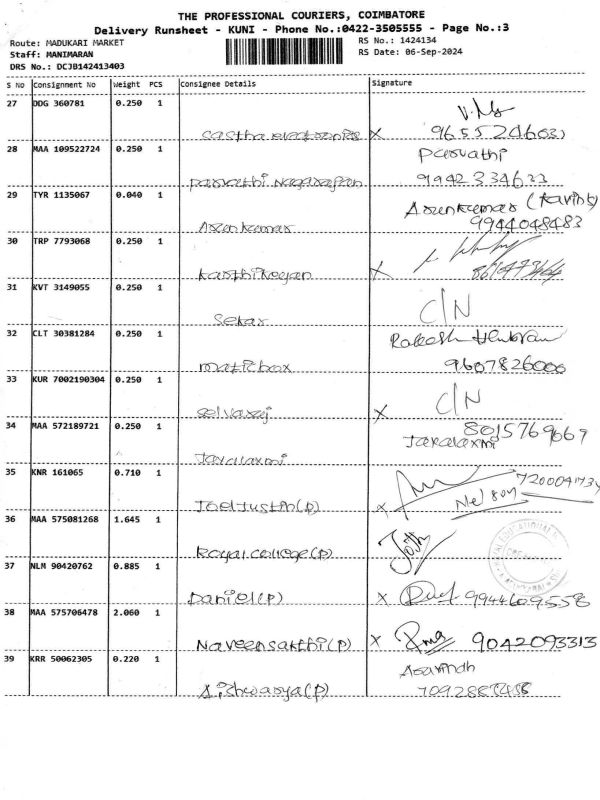 THE PROFESSIONAL COURIERS, COIMBATORE
Delivery Runsheet - KUNI - Phone No.:0422-3505555 - Page No.:3
Route: MADUKARI MARKET RS No.: 1424134
Staff: MANIMARAN RS Date: 06-Sep-2024
DRS No.: DCJB142413403
S No Consignment No Weight PCS Consignee Details Signature
27 DDG 360781 0.250 1
x 9655246031
28 MAA 109522724 0.250 1 Parvathi
Parvathi Nagarajan 9942334633
29 TYR 1135067 0.040 1 Arunkumar
Arunkumar 9944048483
30 TRP 7793068 0.250 1
Karthikeyan x
31 KVT 3149055 0.250 1 C/N
Sekar
32 CLT 30381284 0.250 1 Rakesh
maticbox 9607826000
33 KUR 7002190304 0.250 1 C/N
Selvaraj x
34 MAA 572189721 0.250 1 8015769667
Jayalaxmi Jayalaxmi
35 KNR 161065 0.710 1 Nelson
Joel Justin(p) x
36 MAA 575081268 1.645 1
Royal college(p)
37 NLM 90420762 0.885 1
Daniel(p) x 9944609558
38 MAA 575706478 2.060 1
Naveensakthi(p) x 9042093313
39 KRR 50062305 0.220 1
Aishwarya(p)